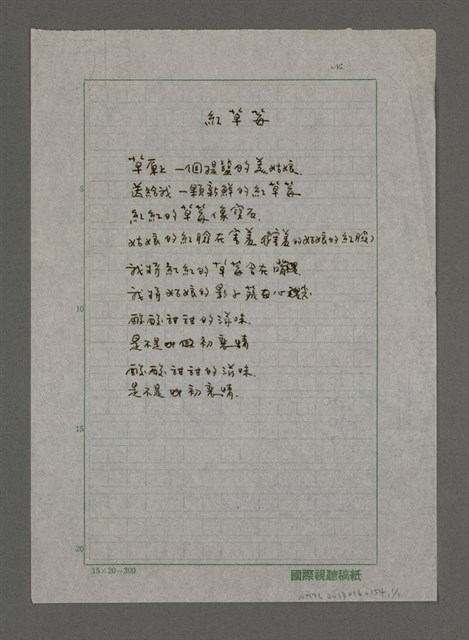 No.
紅草莓
草原上 一個提籃的美姑娘
送給我 一顆新鮮的紅草莓
紅紅的草莓像寶石
姑娘的紅臉在害羞 (害羞的姑娘的紅臉)
我將紅紅的草莓含在嘴裡
我將姑娘的影子藏在心裡
酸酸甜甜的滋味
是不是叫做初戀情
酸酸甜甜的滋味
是不是 初戀情
5
10
15
20
15×20=300
國際視聽稿紙
NMTL20130160154 1/1